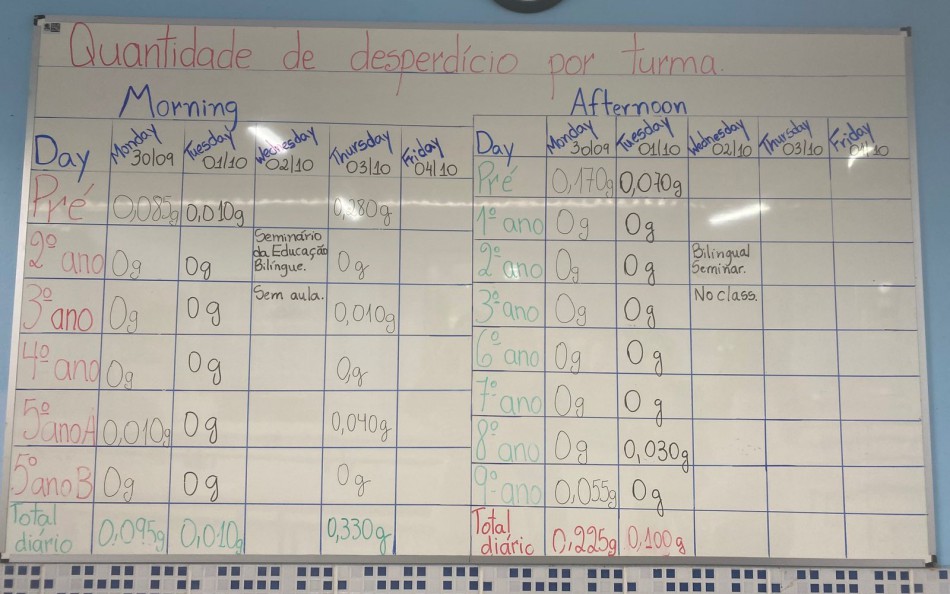 Quantidade de desperdício por turma.
Morning
Day Monday 30/09 Tuesday 01/10 Wednesday 02/10 Thursday 03/10 Friday 04/10
Pré 0,085g 0,010g 0,280g
2º ano 0g 0g Seminário da Educação Bilíngue. 0g
3º ano 0g 0g Sem aula. 0,010g
4º ano 0g 0g 0g
5º ano A 0,010g 0g 0,040g
5º ano B 0g 0g 0g
Total diário 0,095g 0,010g 0,330g
Afternoon
Day Monday 30/09 Tuesday 01/10 Wednesday 02/10 Thursday 03/10 Friday 04/10
Pré 0,170g 0,070g
1º ano 0g 0g
2º ano 0g 0g Bilingual Seminar.
3º ano 0g 0g No class.
6º ano 0g 0g
7º ano 0g 0g
8º ano 0g 0,030g
9º ano 0,055g 0g
Total diário 0,225g 0,100g